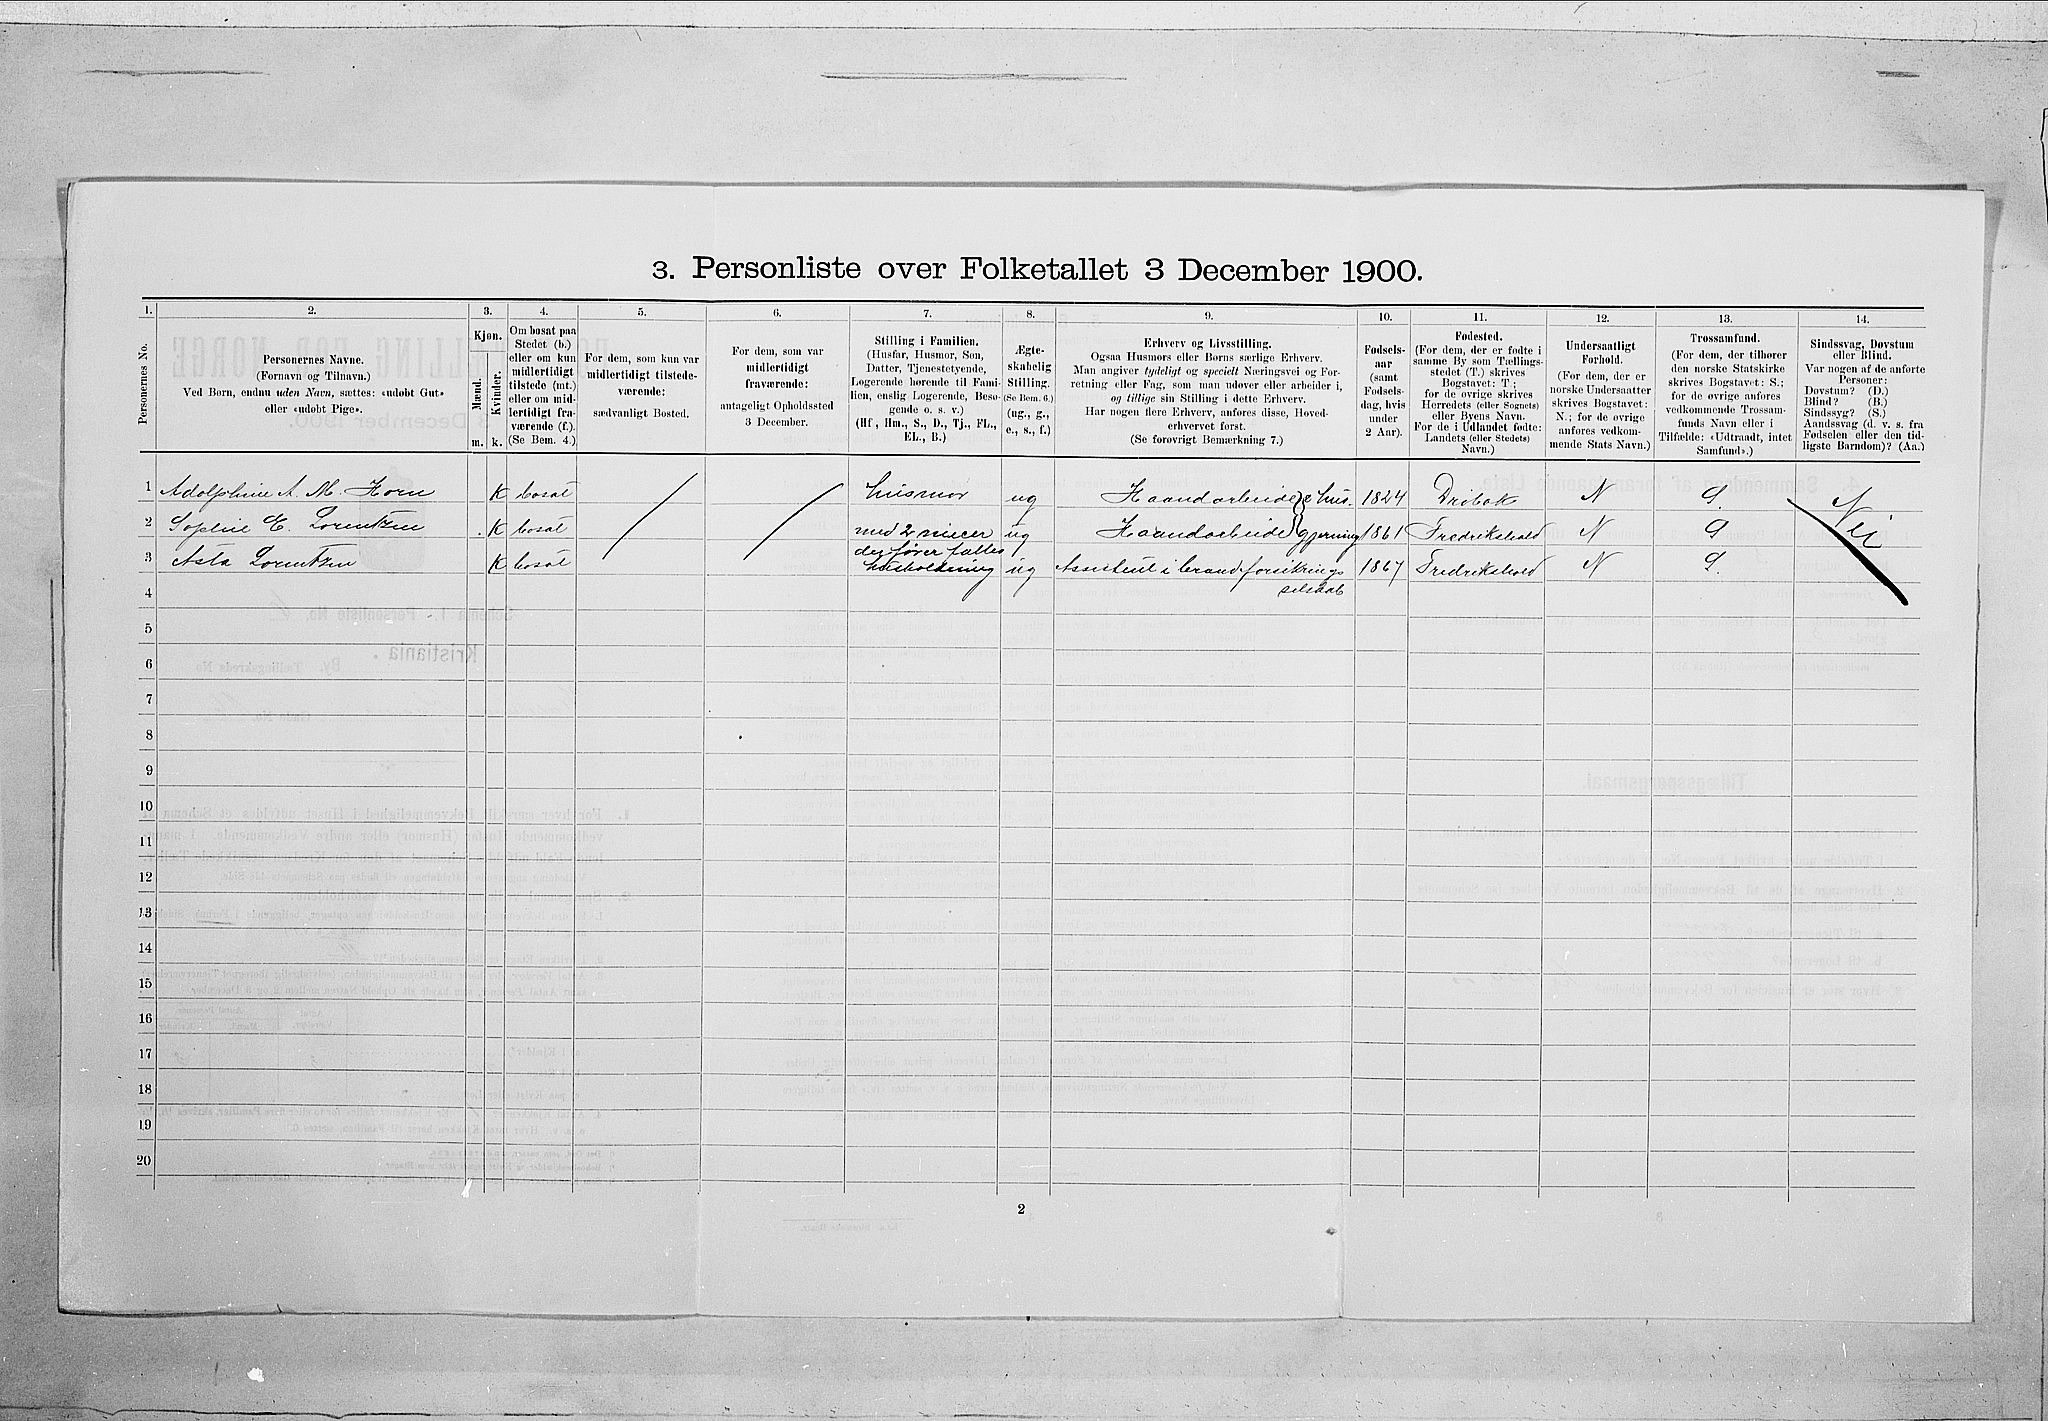 3. Personliste over Folketallet 3 December 1900.
1. 2. 3. 4. 5. 6. 7. 8. 9. 10. 11. 12. 13. 14.
Personernes No.
Personernes Navne.
(Fornavn og Tilnavn.)
Ved Børn, endnu uden Navn, sættes: «udøbt Gut»
eller «udøbt Pige».
Kjøn.
Mænd.
Kvinder.
m. k.
Om bosat paa
Stedet (b.)
eller om kun
midlertidigt
tilstede (mt.)
eller om mid-
lertidigt fra-
værende (f.).
(Se Bem. 4.)
For dem, som kun var
midlertidigt tilstede-
værende:
sædvanligt Bosted.
For dem, som var
midlertidigt
fraværende:
antageligt Opholdssted
3 December.
Stilling i Familien.
(Husfar, Husmor, Søn,
Datter, Tjenestetyende,
Logerende hørende til Fami-
lien, enslig Logerende, Besø-
gende o. s. v.)
(Hf, Hm., S., D., Tj., FL.,
EL., B.)
Ægte-
skabelig
Stilling.
(Se Bem. 6.)
(ug., g.,
e., s., f.)
Erhverv og Livsstilling.
Ogsaa Husmors eller Børns særlige Erhverv.
Man angiver tydeligt og specielt Næringsvei og For-
retning eller Fag, som man udøver eller arbeider i,
og tillige sin Stilling i dette Erhverv.
Har nogen flere Erhverv, anføres disse, Hoved-
erhvervet først.
(Se forøvrigt Bemærkning 7.)
Fødsels-
aar
(samt
Fødsels-
dag, hvis
under
2 Aar).
Fødested.
(For dem, der er fødte i
samme By som Tællings-
stedet (T.) skrives
Bogstavet: T;
for de øvrige skrives
Herredets (eller Sognets)
eller Byens Navn.
For de i Udlandet fødte:
Landets (eller Stedets)
Navn.)
Undersaatligt
Forhold.
(For dem, der er
norske Undersaatter
skrives Bogstavet:
N.; for de øvrige
anføres vedkom-
mende Stats Navn.)
Trossamfund.
(For dem, der tilhører
den norske Statskirke
skrives Bogstavet: S.;
for de øvrige anføres
vedkommende Trossam-
funds Navn eller i
Tilfælde: «Udtraadt, intet
Samfund».)
Sindssvag, Døvstum
eller Blind.
Var nogen af de anførte
Personer:
Døvstum? (D.)
Blind? (B.)
Sindssyg? (S.)
Aandssvag (d. v. s. fra
Fødselen eller den tid-
ligste Barndom)? (Aa.)
1 Adolphine A. M. Horn K bosat Husmor ug Haandarbeide & hus. 1824 Drøbak N S. Nei
2 Sophie E. Lorentzen K bosat med 2 niecer ug Haandarbeide gjerning 1861 Fredrikshald N S
der fører fælles
3 Asta Lorentzen K bosat husholdning ug Assistent i brandforsikrings 1867 Fredrikshald N S.
selskab
4
5
6
7
8
9
10
11
12
13
14
15
16
17
18
19
20
2